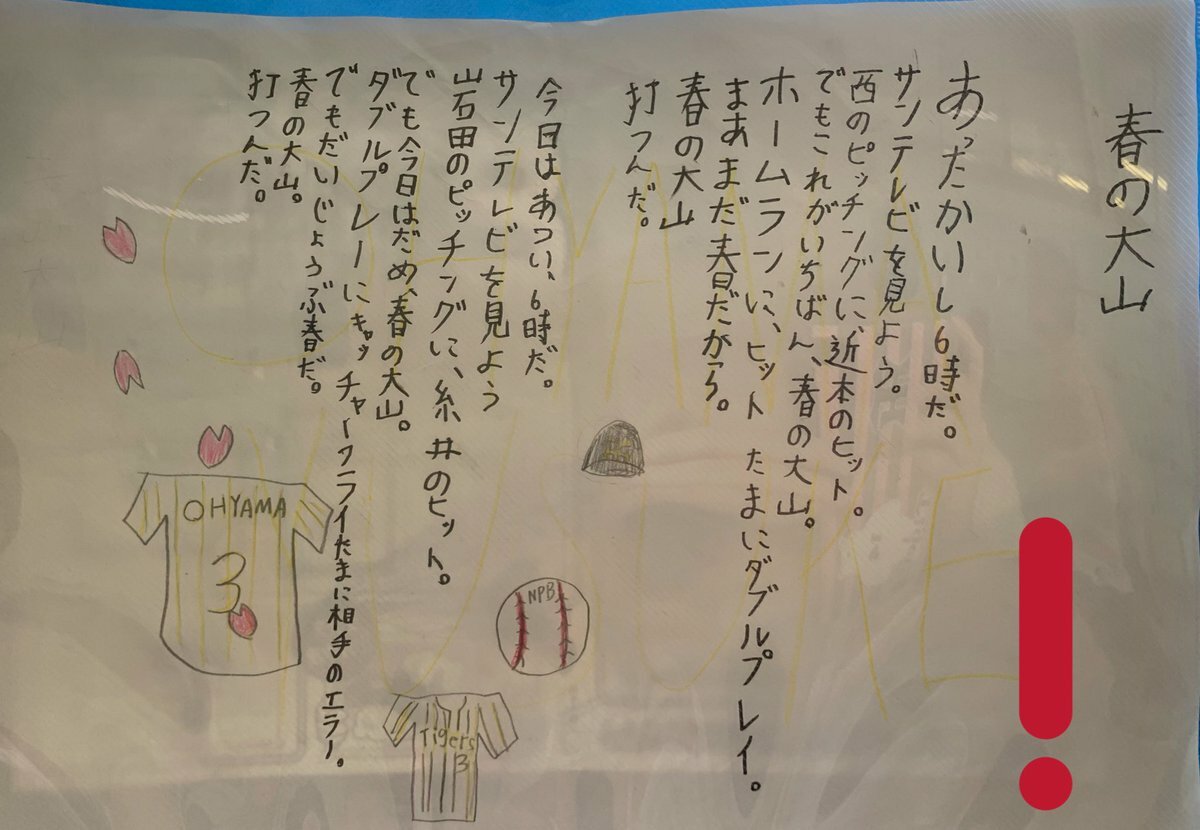 春の大山
あったかいし6時だ。
サンテレビを見よう。
西のピッチングに、近本のヒット。
でもこれがいちばん、春の大山。
ホームランに、ヒット たまにダブルプレイ。
まあまだ春だから。
春の大山
打つんだ。
今日はあつい、6時だ。
サンテレビを見よう
岩田のピッチングに、糸井のヒット。
でも今日はだめ、春の大山。
ダブルプレーにキャッチャーフライたまに相手のエラー。
でもだいじょうぶ春だ。
春の大山。
打つんだ。
OHYAMA
3
NPB
Tigers
3
OHYAMA
YUSUKE